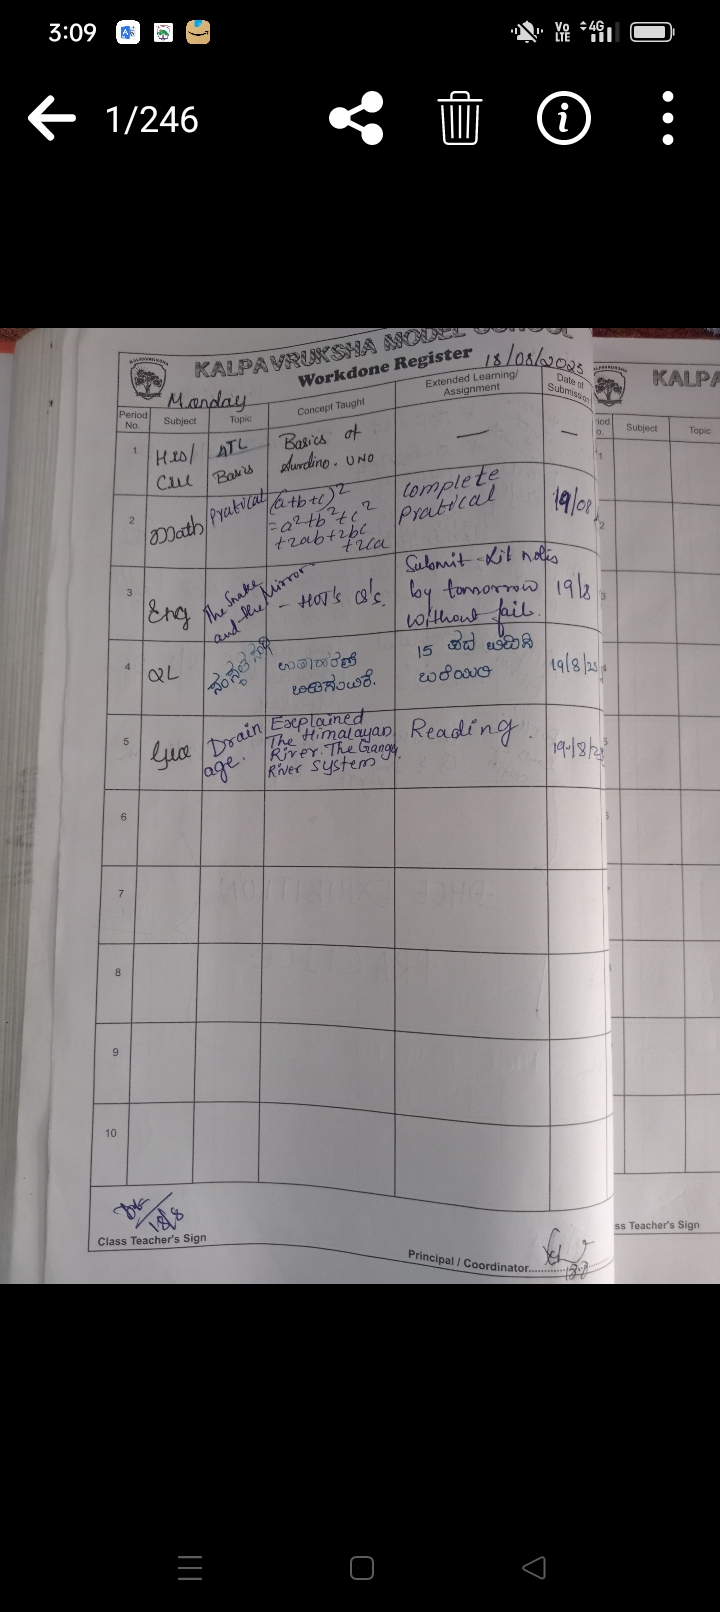 3:09
Vo LTE 4G
1/246
KALPAVRUKSHA MODEL SCHOOL
Workdone Register 18/08/2025
KALPA
Monday
Period No. Subject Topic Concept Taught Extended Learning/ Assignment Date of Submission
Subject Topic
1 ATL Basics Basics of Aurdino. UNO — —
2 Math Pratical (a+b+c)²
=a²+b²+c²
+2ab+2bc
+2ca
complete
pratical
19/08
3 Eng The Snake
and the Mirror
- HOT's Q's.
Submit Lit notes
by tomorrow
without fail.
19/8
4 2L
15 ಪದ
19/8/25
5 Drain
age.
Explained
The Himalayan
River. The Ganga
River System
Reading.
19/8/25
6
7
8
9
10
18/8
Class Teacher's Sign
ss Teacher's Sign
Principal / Coordinator